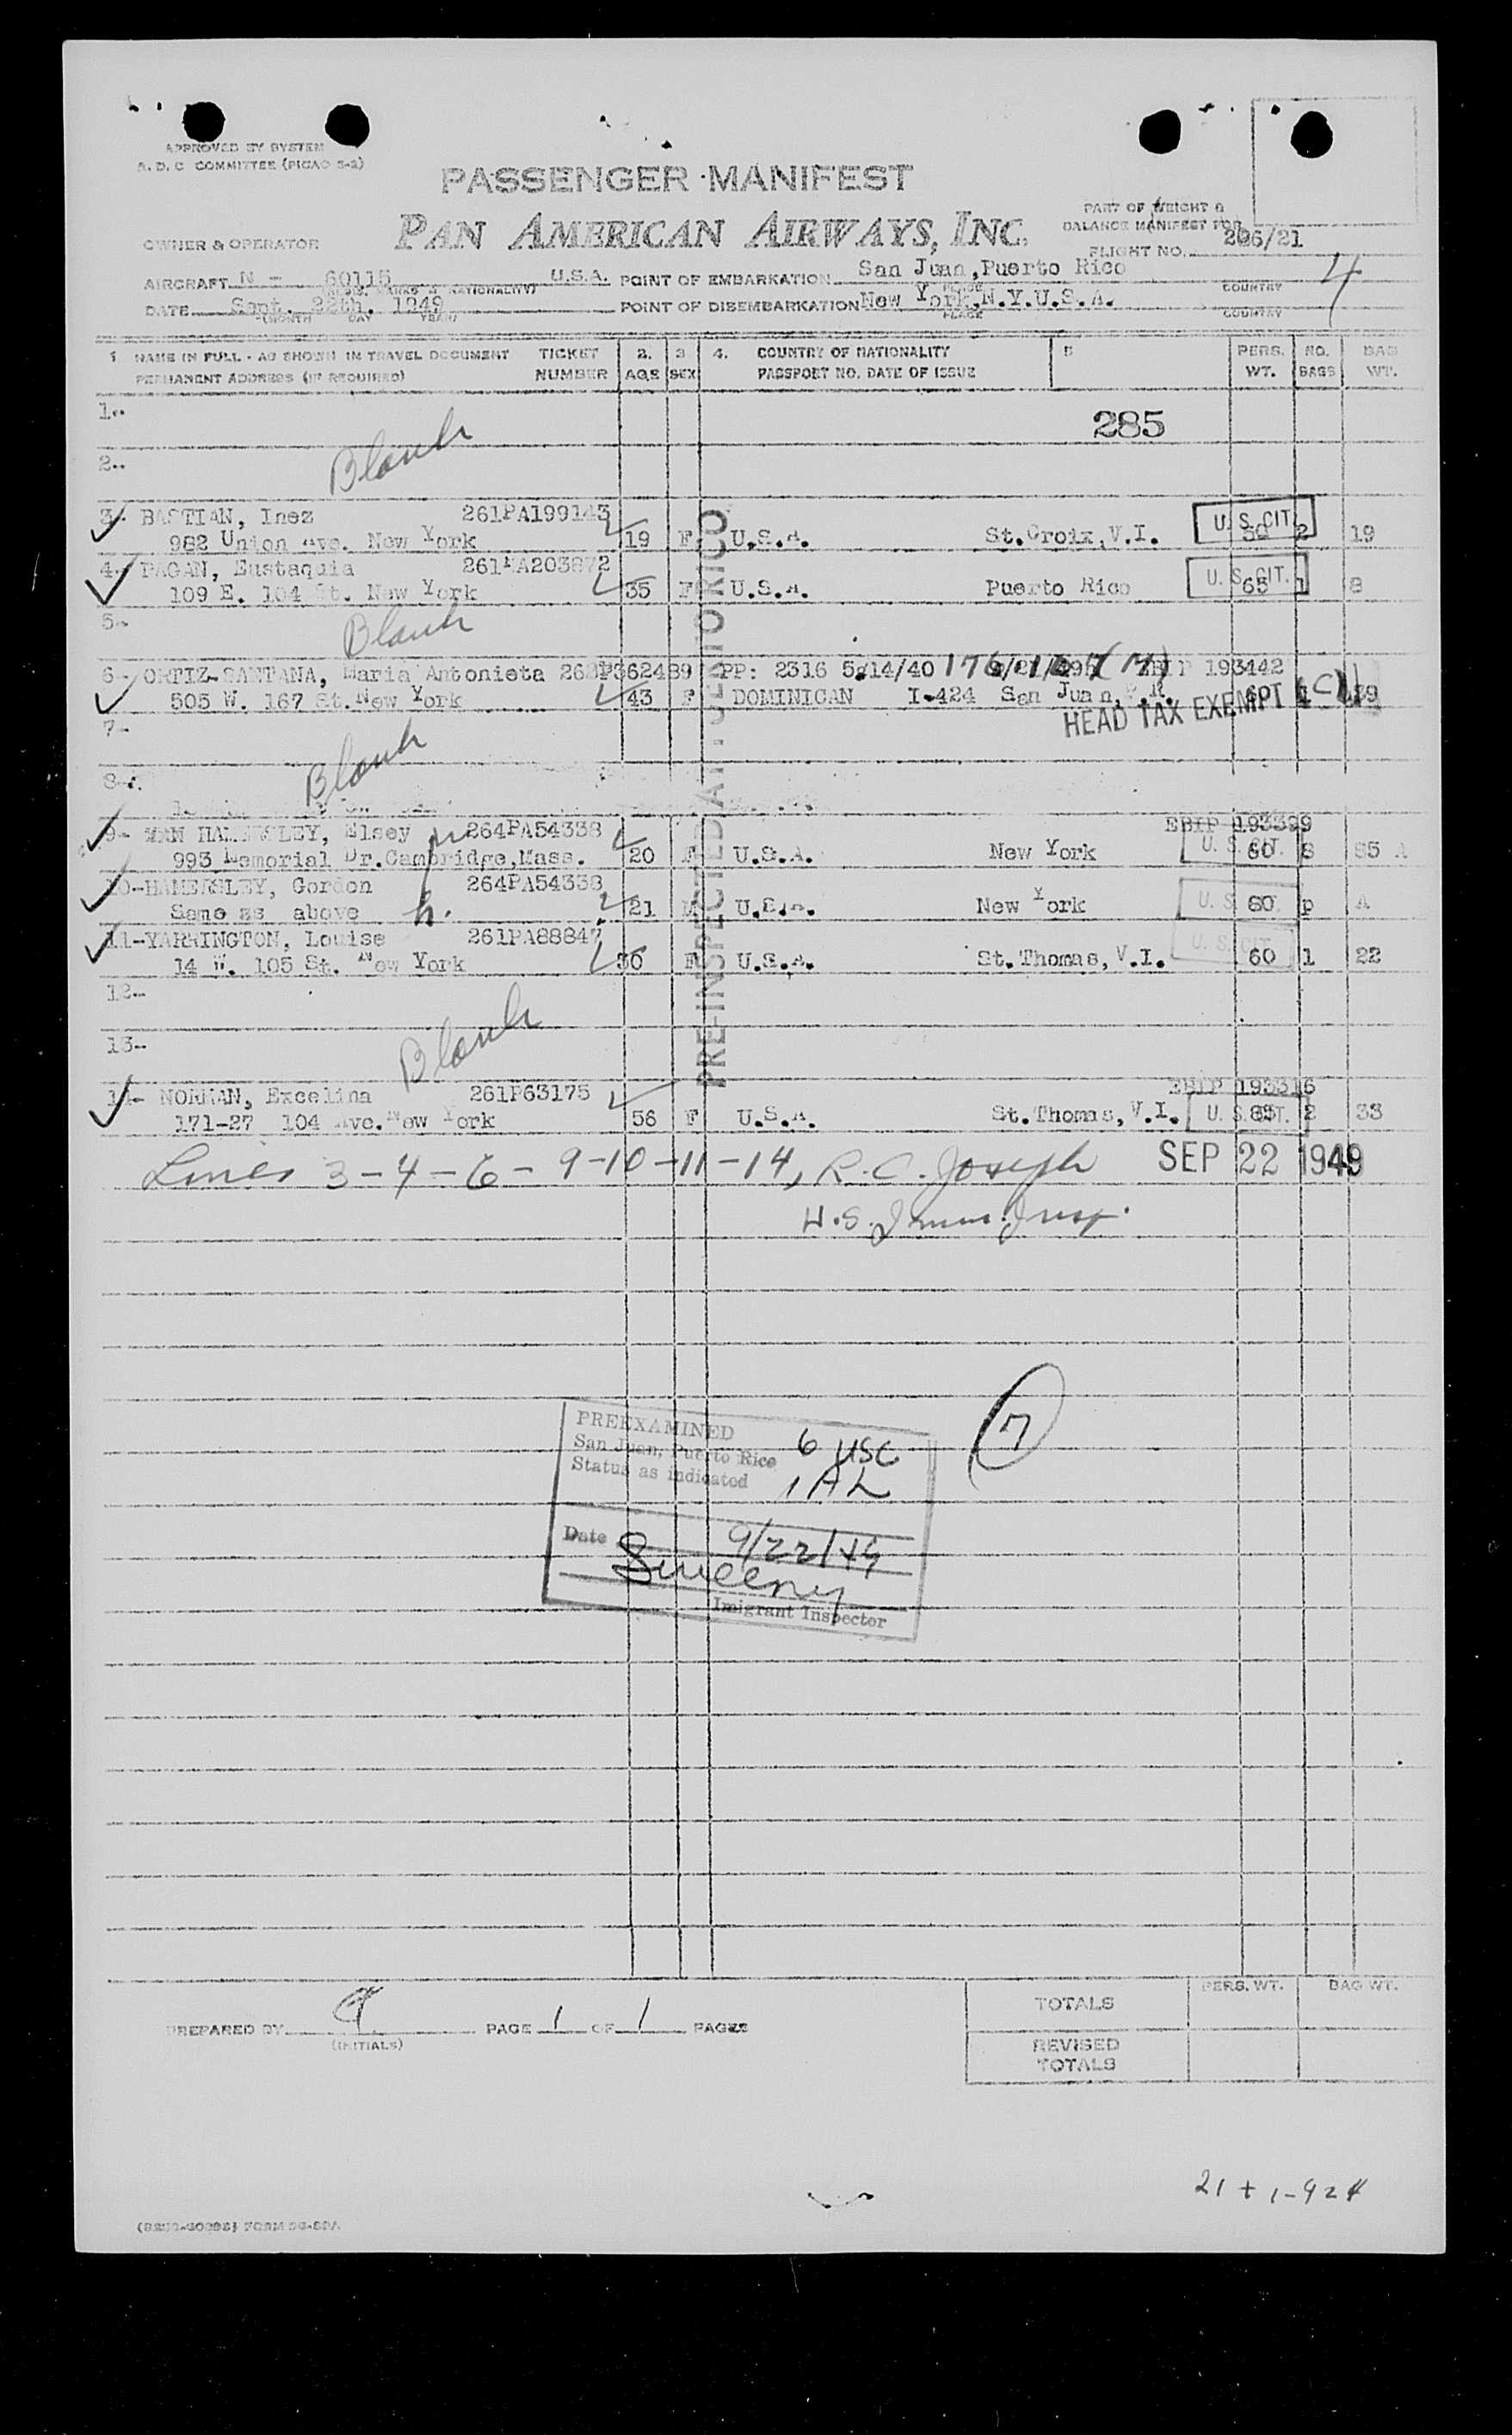 APPROVED BY SYSTEM
A. D. C COMMITTEE (PICAO S-2)
PASSENGER MANIFEST
PAN AMERICAN AIRWAYS, INC.
PART OF WEIGHT &
BALANCE MANIFEST FOR
OWNER & OPERATOR
FLIGHT NO. 206/21
AIRCRAFT N - 60115 U.S.A. POINT OF EMBARKATION San Juan, Puerto Rico
4
(REGIS. MARKS & NATIONALITY) PLACE COUNTRY
DATE Sept. 22th. 1949 POINT OF DISEMBARKATION New York, N.Y.U.S.A.
(MONTH DAY YEAR) PLACE COUNTRY
1 NAME IN FULL - AS SHOWN IN TRAVEL DOCUMENT TICKET 2. 3 4. COUNTRY OF NATIONALITY 5 PERS. NO. BAG
PERMANENT ADDRESS (IF REQUIRED) NUMBER AGE SEX PASSPORT NO. DATE OF ISSUE WT. BAGS WT.
1--
285
2-- Blank
3- BASTIAN, Inez 261PA199143 U. S. CIT.
982 Union Ave. New York 19 F U.S.A. St.Croix,V.I. 2 19
4- PAGAN, Eustaquia 261PA203872
109 E. 104 St. New York 35 F U.S.A. Puerto Rico U. S. CIT. 65 1 8
5- Blank
6- ORTIZ-SANTANA, Maria Antonieta PP: 2316 5/14/40 193442
505 W. 167 St. New York 43 F DOMINICAN I-424 San Juan, P.R.
HEAD TAX EXEMPT
7-
8- Blank
PRE-INSPECTED AT PUERTO RICO
EBIP 193399
9- HAMERSLEY, Elsey 264PA54338
993 Memorial Dr.Cambridge,Mass. 20 F U.S.A. New York U. S. CIT. 60 S 55 A
10-HAMERSLEY, Gordon 264PA54338
Same as above h. 21 M U.S.A. New York U. S. 60 p A
11-YARRINGTON, Louise 261PA88847 U. S. CIT.
14 W. 105 St. New York 30 F U.S.A. St.Thomas,V.I. 60 1 22
12--
13-- Blank
EBIP 193316
14- NORMAN, Excelina 261P63175
171-27 104 Ave. New York 56 F U.S.A. St.Thomas,V.I. U. S. CIT. 85 2 33
Lines 3-4-6-9-10-11-14, R.C. Joseph SEP 22 1949
U.S. Imm. Insp.
7
PREEXAMINED
San Juan, Puerto Rico 6 USC
Status as indicated 1 AL
Date 9/22/49
Sweeny
Imigrant Inspector
PERS. WT. BAG WT.
TOTALS
PREPARED BY PAGE 1 OF 1 PAGES
(INITIALS)
REVISED
TOTALS
21 + 1-924